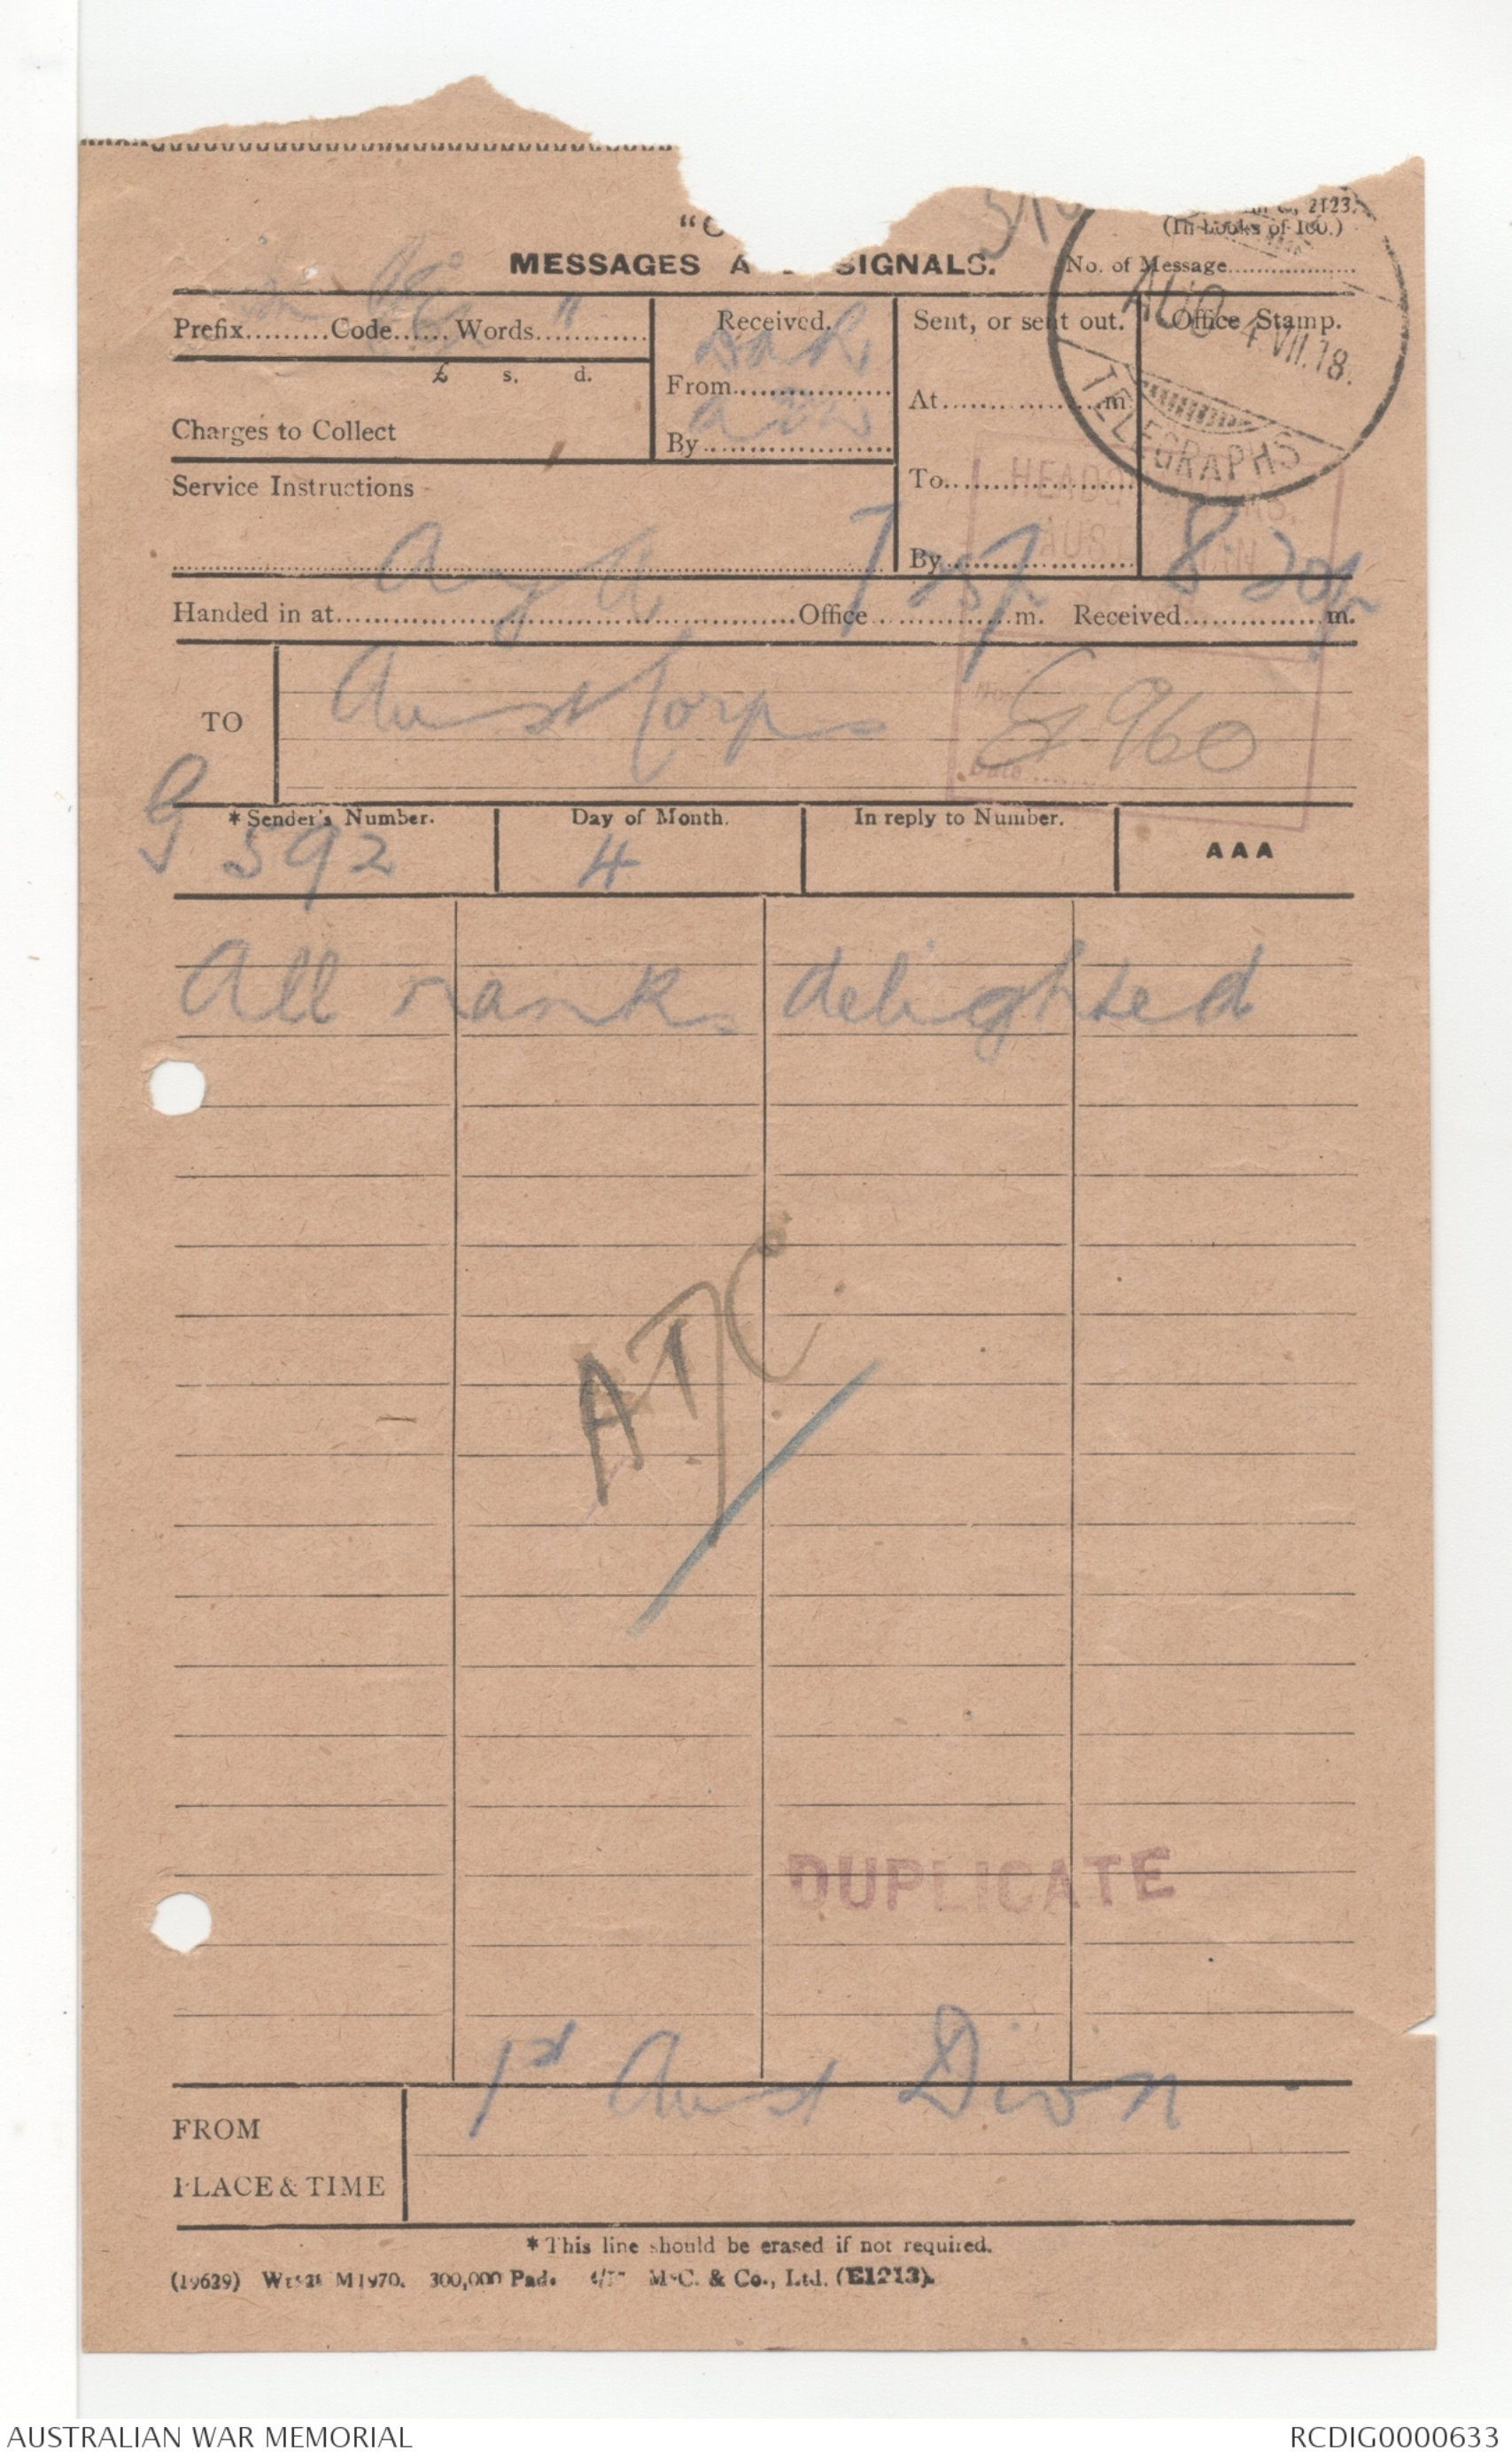 2123.
(In books of 100.)
MESSAGES A SIGNALS.
No. of Message..................
Prefix.........Code...... Words............. "
Received.
Sent, or sent out.
Office Stamp.
4.VII.18.
TELEGRAPHS
£ s. d.
From...................
At...................m
Charges to Collect
By......................
Service Instructions
To.......................
By......................
Handed in at.....................................................Office................m. Received.................m.
7 25p 8.20p
TO Aust Corps
G 960
Date
G 592
*Sender's Number.
Day of Month.
4
In reply to Number.
AAA
All ranks delighted
DUPLICATE
1st Aust Divn
FROM
PLACE & TIME
* This line should be erased if not required.
(19629) M1970. 300,000 Pads McC. & Co., Ltd. (E1213).
AUSTRALIAN WAR MEMORIAL
RCDIG0000633